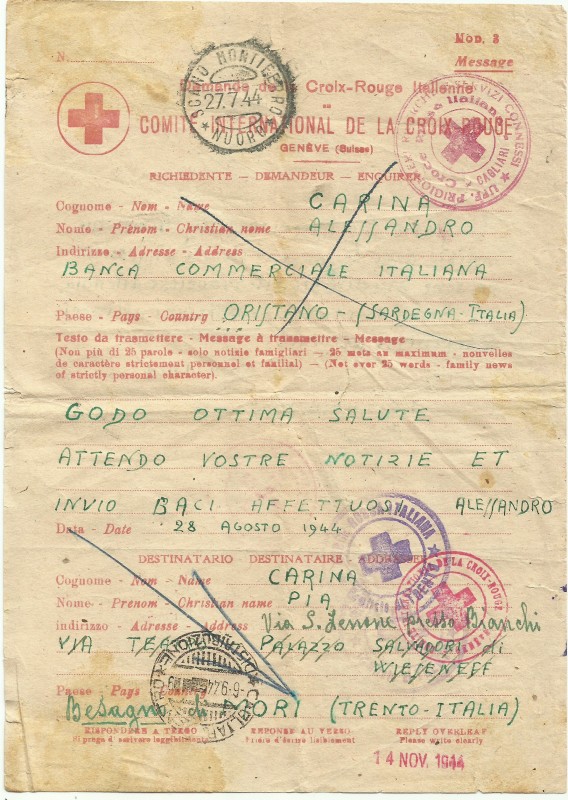 MOD. 3
N.
Message
Demande de la Croix-Rouge Italienne
au
COMITÉ INTERNATIONAL DE LA CROIX ROUGE
GENÈVE (Suisse)
SCANO MONTIFERRO
27.7.44
* (NUORO) *
UFF. PRIGIONIERI RICERCHE E SERVIZI CONNESSI *
Croce Rossa Italiana
CAGLIARI
RICHIEDENTE — DEMANDEUR — ENQUIRER
Cognome - Nom - Name CARINA
Nome - Prénom - Christian name ALESSANDRO
Indirizzo - Adresse - Address
BANCA COMMERCIALE ITALIANA
Paese - Pays - Country ORISTANO - (SARDEGNA-ITALIA)
Testo da trasmettere - Message à transmettre - Message
(Non più di 25 parole - solo notizie famigliari) — 25 mots au maximum - nouvelles
de caractère strictement personnel et familial) — (Not over 25 words - family news
of strictly personal character).
GODO OTTIMA SALUTE
ATTENDO VOSTRE NOTIZIE ET
INVIO BACI AFFETTUOSI ALESSANDRO
Data - Date 28 AGOSTO 1944
ITALIANA
TRENTO
DE LA CROIX-ROUGE
DESTINATARIO - DESTINATAIRE - ADDRESSEE
Cognome - Nom - Name CARINA
Nome - Prénom - Christian name PIA
indirizzo - Adresse - Address Via S. presso Bianchi
VIA PALAZZO SALVADORI di
WIESENEFF
DISTRIBUZIONE
6-9-44
Paese - Pays - Country
MORI (TRENTO-ITALIA)
RISPONDERE A TERGO RÉPONSE AU VERSO REPLY OVERLEAF
Si prega di scrivere leggibilmente Prière d'écrire lisiblement Please write clearly
14 NOV. 1944